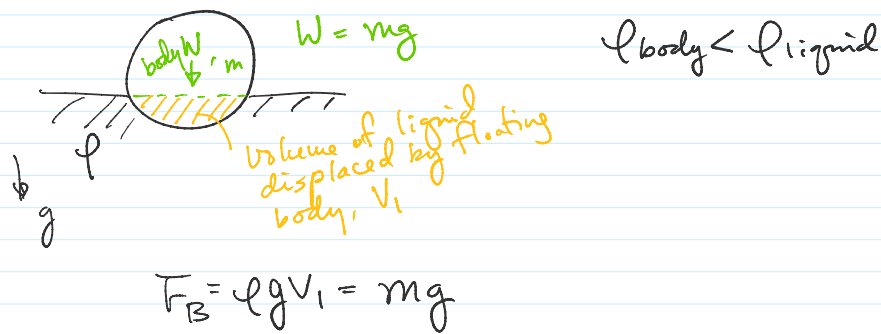 W = mg
ρbody < ρliquid
body W, m
ρ
g
volume of liquid
displaced by floating
body, V₁
F_B = ρgV₁ = mg